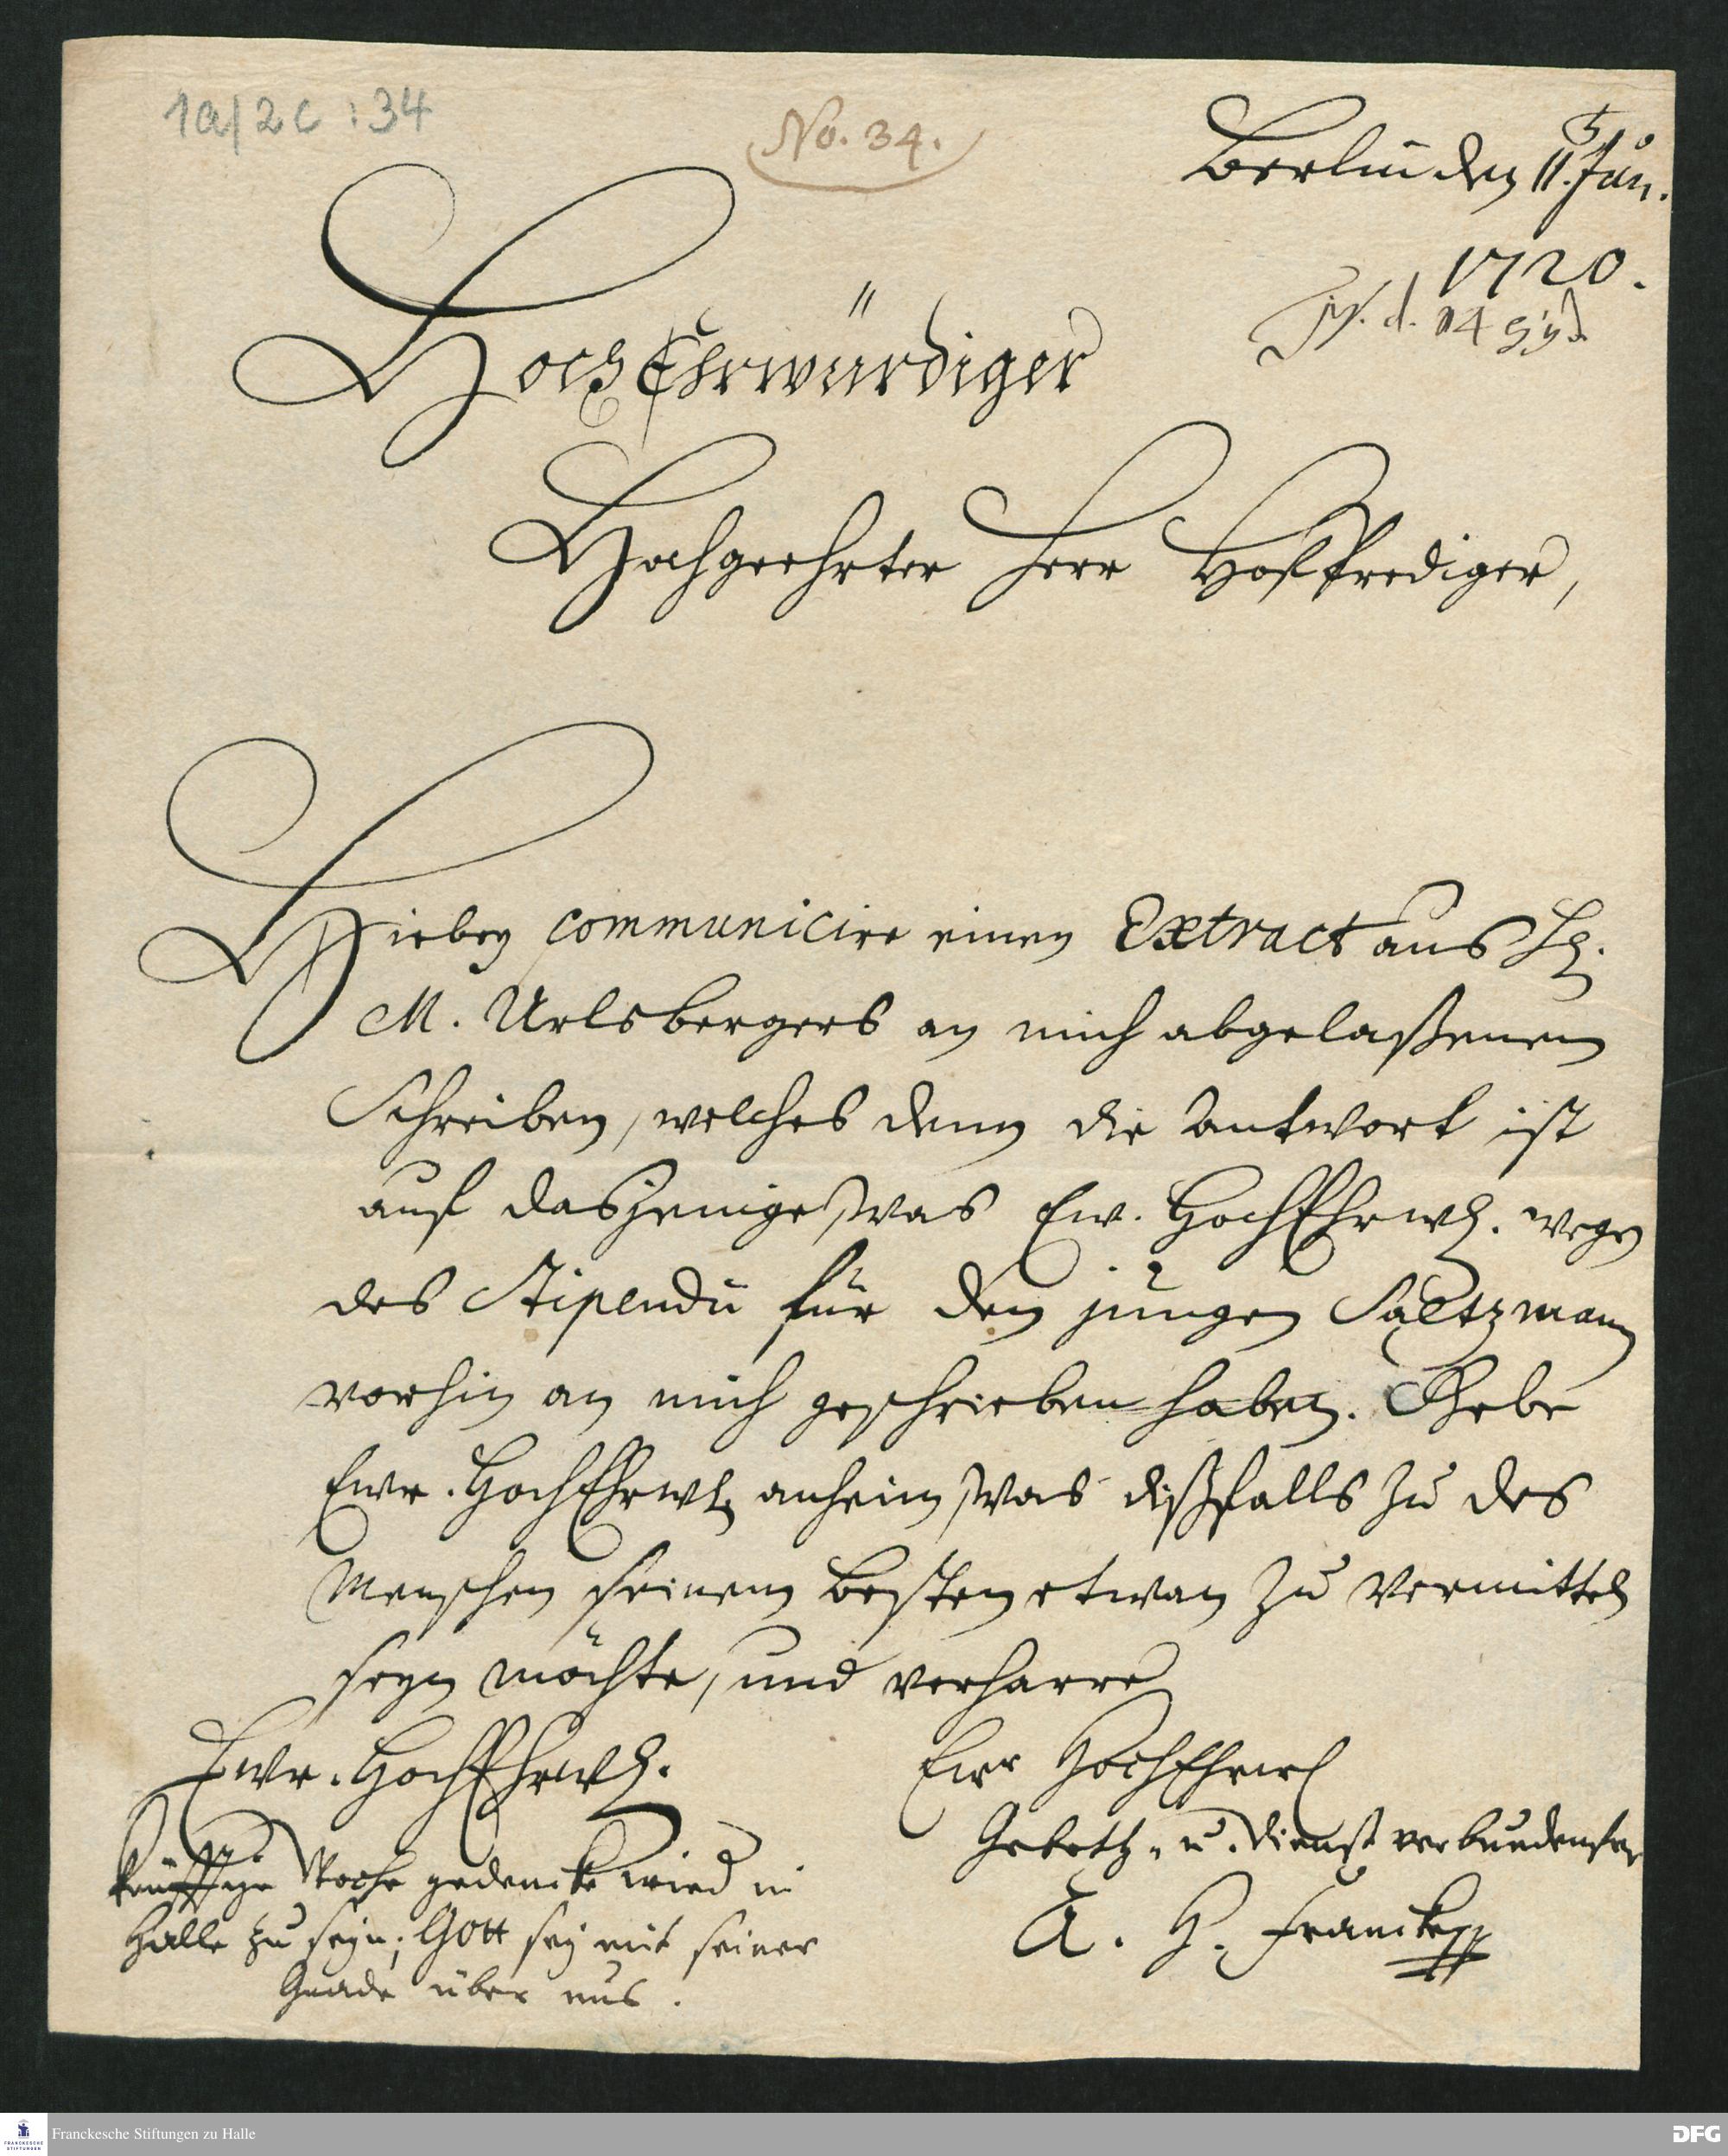 1a/2c : 34
No. 34.
Berlin den 11. Jun.
1720.
d. 14
HochEhrwürdiger
Hochgeehrter Herr Hoffprediger,
Hiebey communicire einen Extract aus H.
M. Urlsbergers an mich abgelaßenem
Schreiben, welches denn die Antwort ist
auf dasjenige, was Ew. HochEhrw. wegen
des Stipendii für den jungen Saltzmann
vorhin an mich geschrieben haben. Gebe
Ewr. HochEhrw. anheim, was dißfalls zu des
Menschen seinem Besten etwan zu vermitteln
seyn möchte, und verharre
Ewr. HochEhrw.
Ewr HochEhrw
Gebeth- u. Dienst verbundenster
A. H. Francke
künfftige Woche gedencke wied in
Halle zu seyn; Gott sey mit seiner
Gnade über uns.
FRANCKESCHE STIFTUNGEN
Franckesche Stiftungen zu Halle
DFG